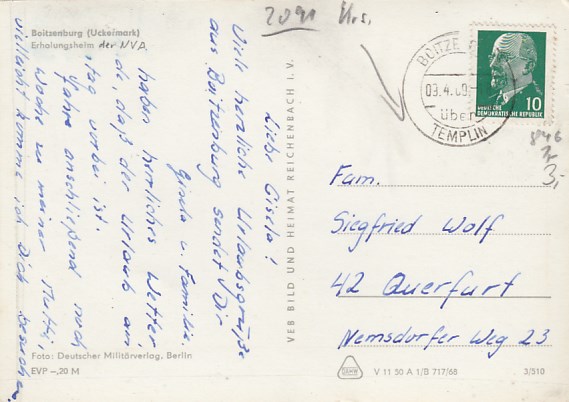 Boitzenburg (Uckermark)
Erholungsheim der NVA
2091 Urs.
Liebe Gisela!
Viele herzliche Urlaubsgrüße
aus Boitzenburg sendet Dir
Gerda u. Familie.
haben herrliches Wetter
de, daß der Urlaub am
tag vorbei ist.
fahre anschließend noch
Woche zu meiner Mutti,
vielleicht komme ich Dich besuchen.
Foto: Deutscher Militärverlag, Berlin
EVP –,20 M
VEB BILD UND HEIMAT REICHENBACH I. V.
03.4.69
über
TEMPLIN
10
DEUTSCHE
DEMOKRATISCHE REPUBLIK
846
3,-
Fam.
Siegfried Wolf
42 Querfurt
Nemsdorfer Weg 23
V 11 50 A 1/B 717/68
3/510